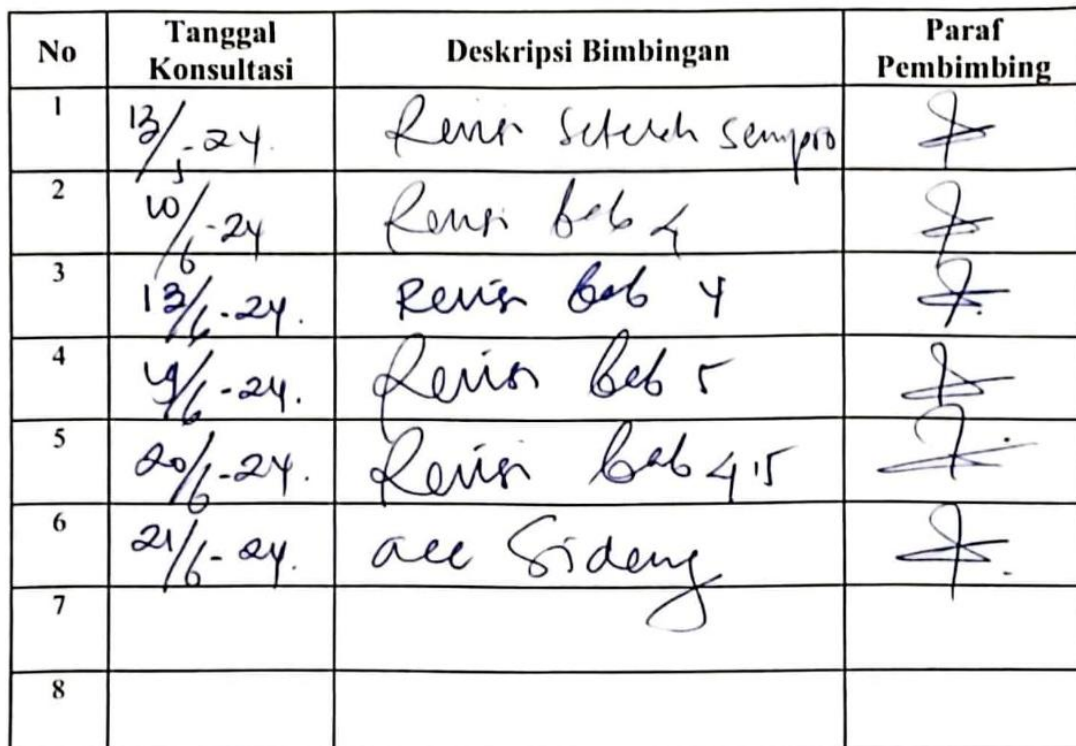 No Tanggal Konsultasi Deskripsi Bimbingan Paraf Pembimbing
1 13/5-24. Revisi Setelah Sempro
2 10/6-24 Revisi bab 4
3 13/6-24. Revisi Bab 4
4 19/6-24. Revisi Bab 5
5 20/6-24. Revisi Bab 4,5
6 21/6-24. acc Sidang
7
8